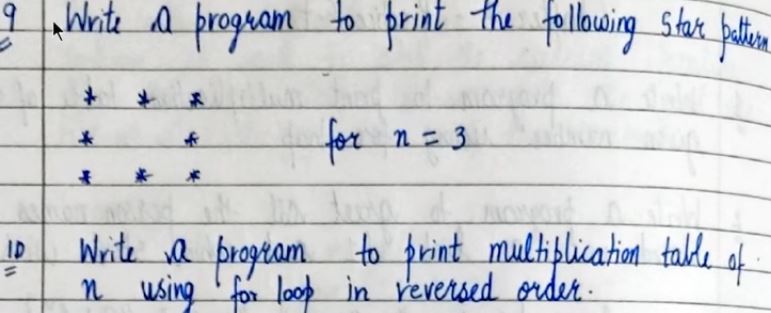 9 Write a program to print the following star pattern
* * *
* * for n = 3
* * *
10 Write a program to print multiplication table of
n using for loop in reversed order.